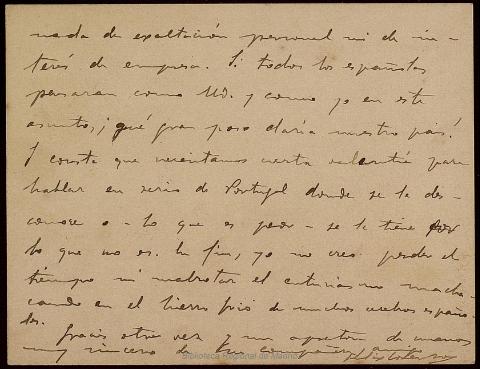 nada de exaltación personal ni de in-
terés de empresa. Si todos los españoles
pensaran como Ud. y como yo en este
asunto, ¡qué gran paso daría nuestro país!
Y consta que necesitamos cierta valentía para
hablar en serio de Portugal donde se la des-
conoce o - lo que es peor - se le tiene por
lo que no es. En fin, yo no creo perder el
tiempo ni malrotar el entusiasmo macha-
cando en el hierro frío de muchos cerebros españo-
les.
Gracias otra vez y un apretón de manos
muy sincero de su compañero
Biblioteca Regional de Madrid